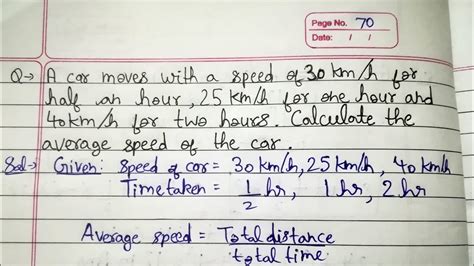 Page No. 70
Date: / /
Q→ A car moves with a speed of 30 km/h for
half an hour, 25 km/h for one hour and
40 km/h for two hours. Calculate the
average speed of the car.
Sol→ Given: Speed of car = 30 km/h, 25 km/h, 40 km/h
Time taken = 1/2 hr, 1 hr, 2 hr
Average speed = Total distance
total time